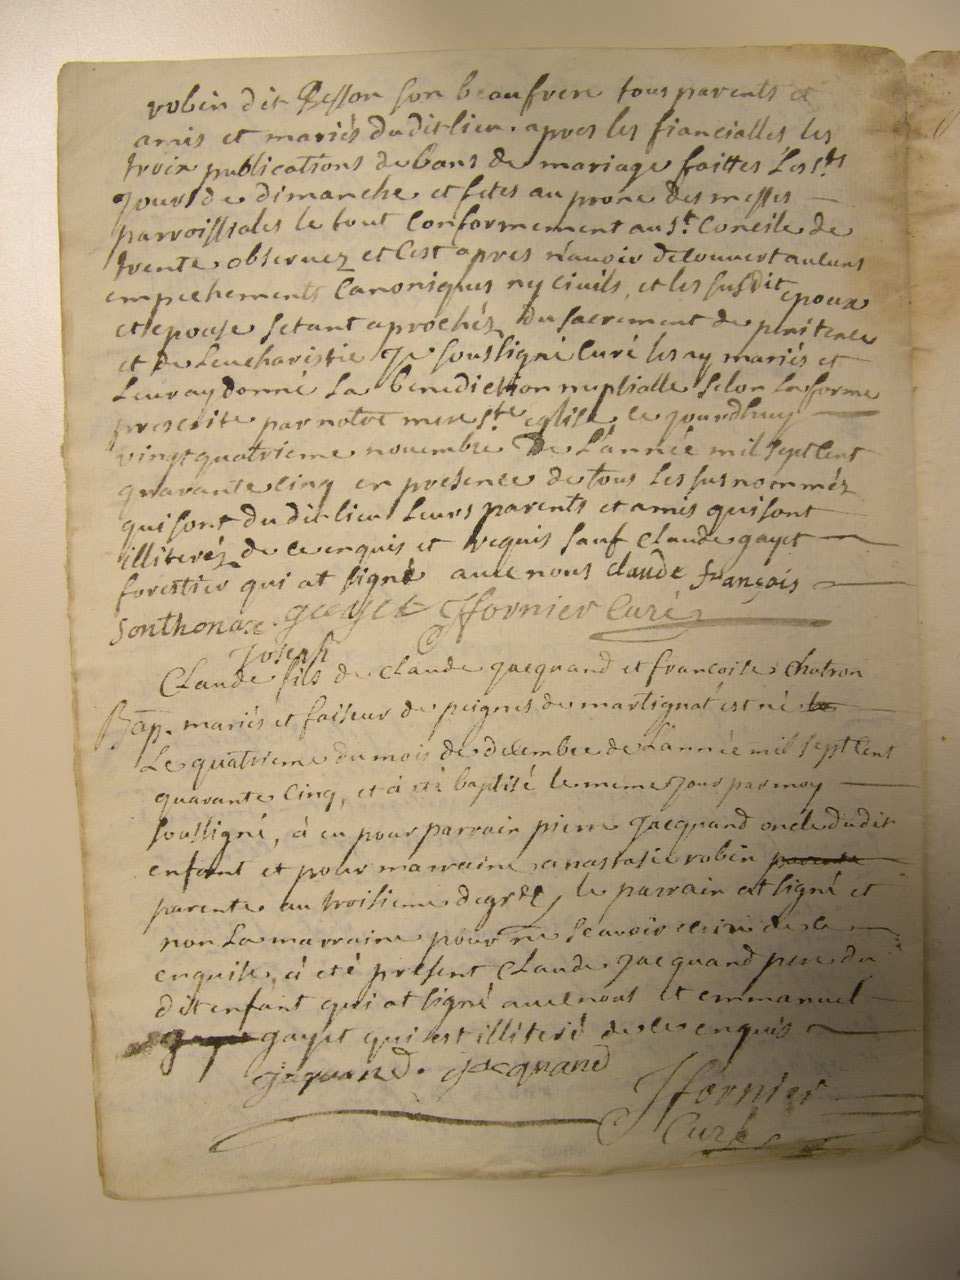 robin dit Besson son beaufrere tous parents et
amis et mariés dudit lieu. apres les fiancialles les
trois publications de bans de mariage faittes les sts
jours de dimanche et fetes au prone des messes
parroissiales le tout conformement au st. concile de
trente observez et cest apres n'avoir decouvert aucuns
empechements canoniques ny civils, et les susdit epoux
et epouse setant aprochéz du sacrement de penitence
et de leucharistie je soussigné curé les ay mariés et
leur ay donné la benediction nuptialle selon la forme
prescrite par notre mere ste eglise ce jourdhuy
vingt quatrieme novembre de l'année mil sept cent
quarante cinq en présence de tous les susnommés
qui sont du dit lieu leurs parents et amis qui sont
illiteréz de ce enquis et requis sauf claude gayet
forestier qui at signé avec nous claude françois
sonthonax. gayet Jfornier Curé
Joseph
Claude fils de claude jacquand et francoise chatron
Bap. mariés et faiseur de peignes de martignat est né le
Le quatrieme du mois de decembre de l'année mil sept cent
quarante cinq, et à été baptisé le meme jour par moy
soussigné, à eu pour parrain pierre Jacquand oncle dudit
enfant et pour marraine anastasie robin parente
parente au troisieme degréz, le parrain at signé et
non la marraine pour ne scavoir ecrire de ce
enquise, à eté présent claude jacquand pere du
dit enfant qui at signé avec nous et emmanuel
gayet qui est illiteré de ce enquis
jaquand. jacquand
Jfornier
Curé